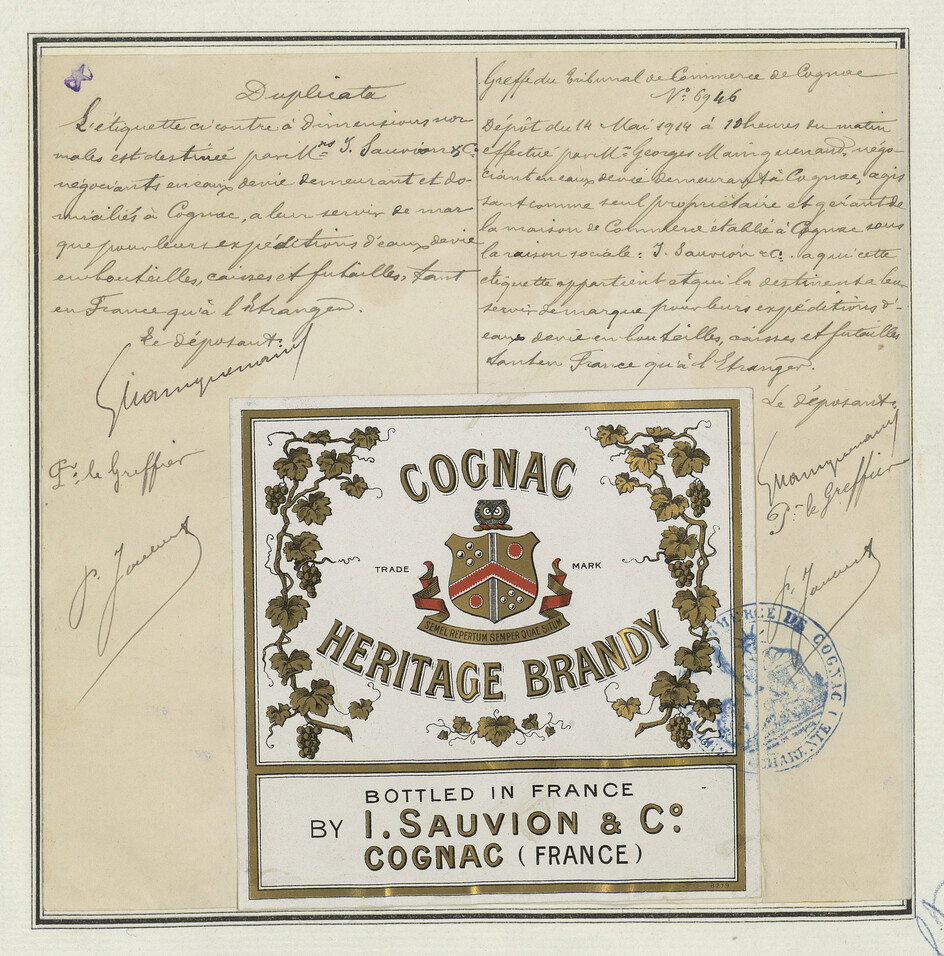 Duplicata
L'étiquette ci contre à dimensions nor
males est destinée par Mrs I. Sauvion & Co.
négociants en eaux de vie demeurant et do-
miciliés à Cognac, a leur servir de mar
que pour leurs expéditions d'eaux de vie
en bouteilles, caisses et futailles, tant
en France qu'à l'Etranger.
Le déposant.
GMainguenaud
Pr. le Greffier
Greffe du Tribunal de Commerce de Cognac
No. 6946
Dépôt du 14 Mai 1914 à 10 heures du matin
effectué par Mr. Georges Mainguenaud, négo-
ciant en eaux de vie demeurant à Cognac, agis
sant comme seul propriétaire et gérant de
la maison de Commerce établie à Cognac sous
la raison sociale: I. Sauvion & Co. a qui cette
étiquette appartient et qui la destinent a leur
servir de marque pour leurs expéditions d'
eaux de vie en bouteilles, caisses et futailles
tant en France qu'à l'Etranger.
Le déposant.
GMainguenaud
Pr. le Greffier
COGNAC
TRADE MARK
SEMEL REPERTUM SEMPER QUAESITUM
HERITAGE BRANDY
BOTTLED IN FRANCE
BY I. SAUVION & Co.
COGNAC (FRANCE)
MERCE DE COGNAC